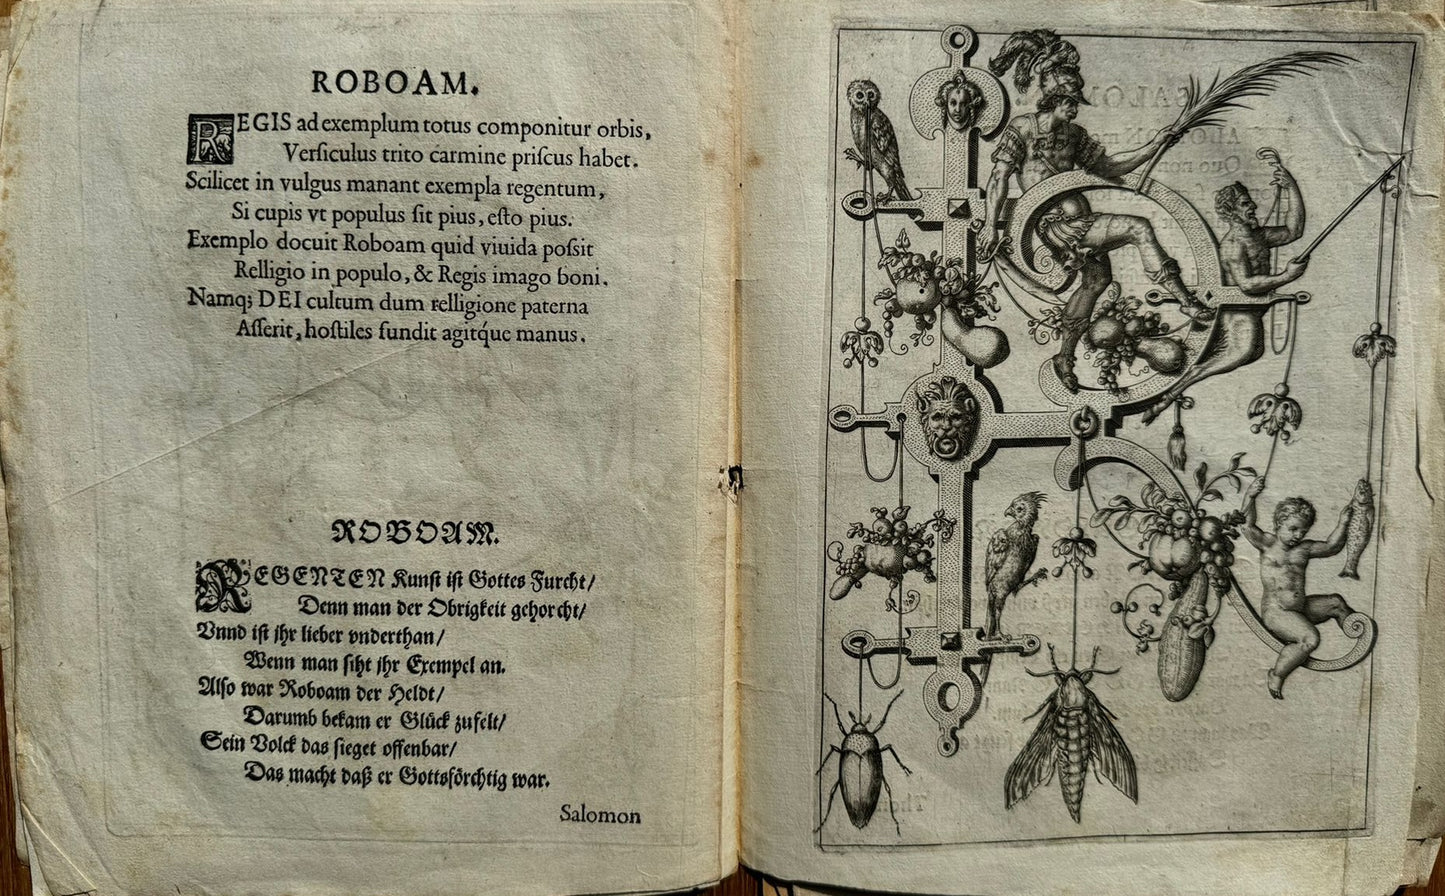 ROBOAM.
REGIS ad exemplum totus componitur orbis,
Verſiculus trito carmine priſcus habet.
Scilicet in vulgus manant exempla regentum,
Si cupis vt populus ſit pius, eſto pius.
Exemplo docuit Roboam quid viuida poſsit
Relligio in populo, & Regis imago boni.
Namq; DEI cultum dum relligione paterna
Aſſerit, hoſtiles fundit agitq́ue manus.
ROBOAM.
REGENTEN Kunſt iſt Gottes Furcht/
Denn man der Obrigkeit gehorcht/
Vnnd iſt jhr lieber vnderthan/
Wenn man ſiht jhr Exempel an.
Alſo war Roboam der Heldt/
Darumb bekam er Glück zufelt/
Sein Volck das ſieget offenbar/
Das macht daß er Gottsförchtig war.
Salomon
R